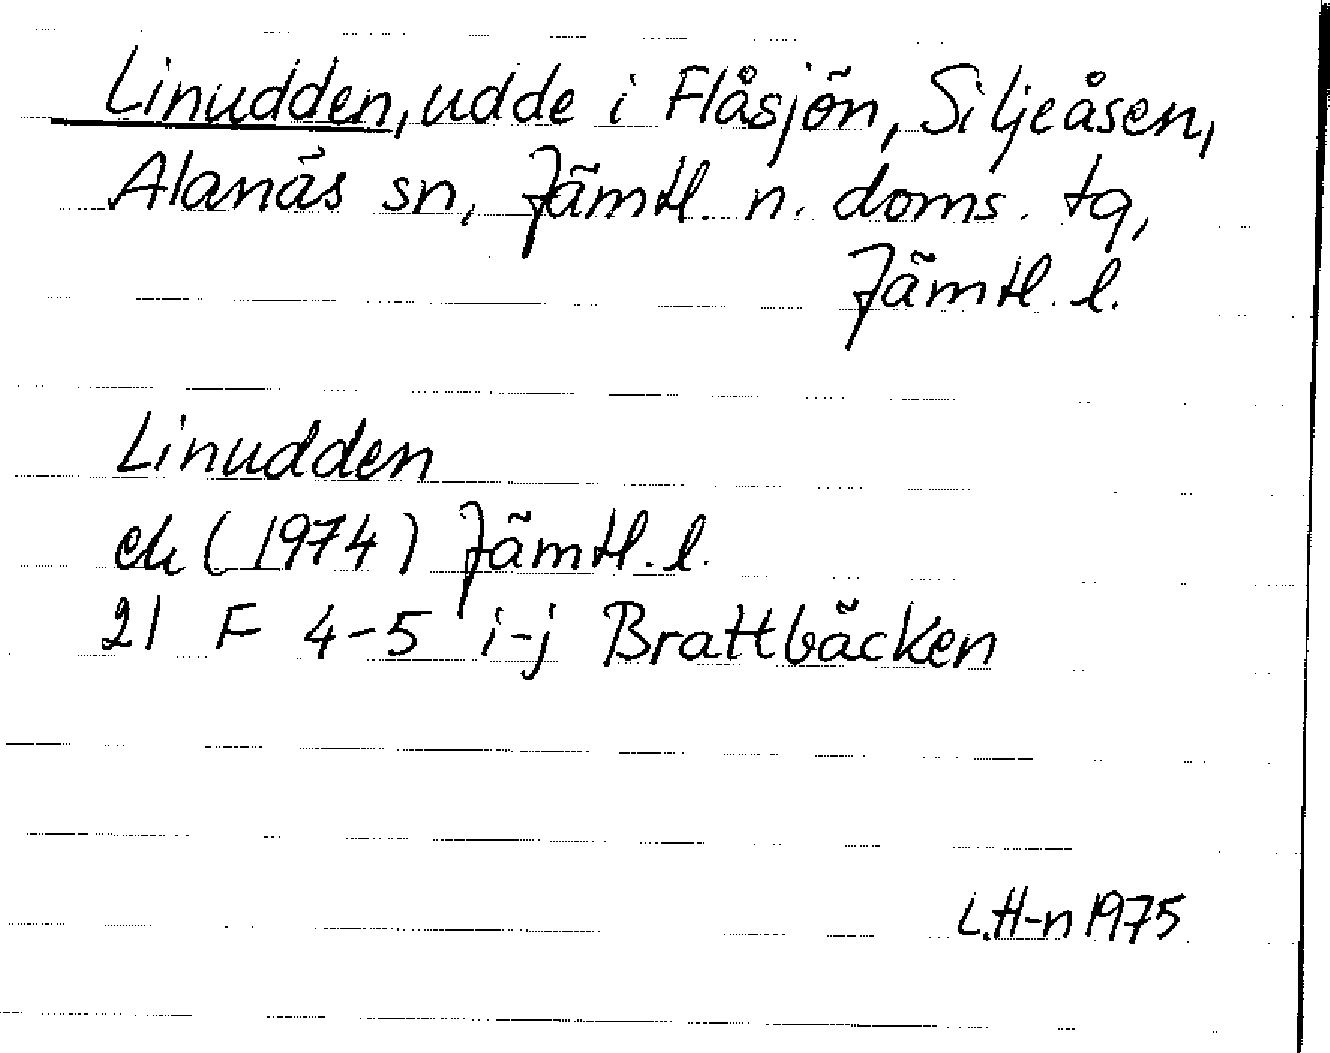 Linudden, udde i Flåsjön, Siljeåsen,
Alanäs sn, Jämtl. n. doms. tg,
Jämtl. l.
Linudden
ek (1974) Jämtl. l.
21 F 4-5 i-j Brattbäcken
L.H-n 1975